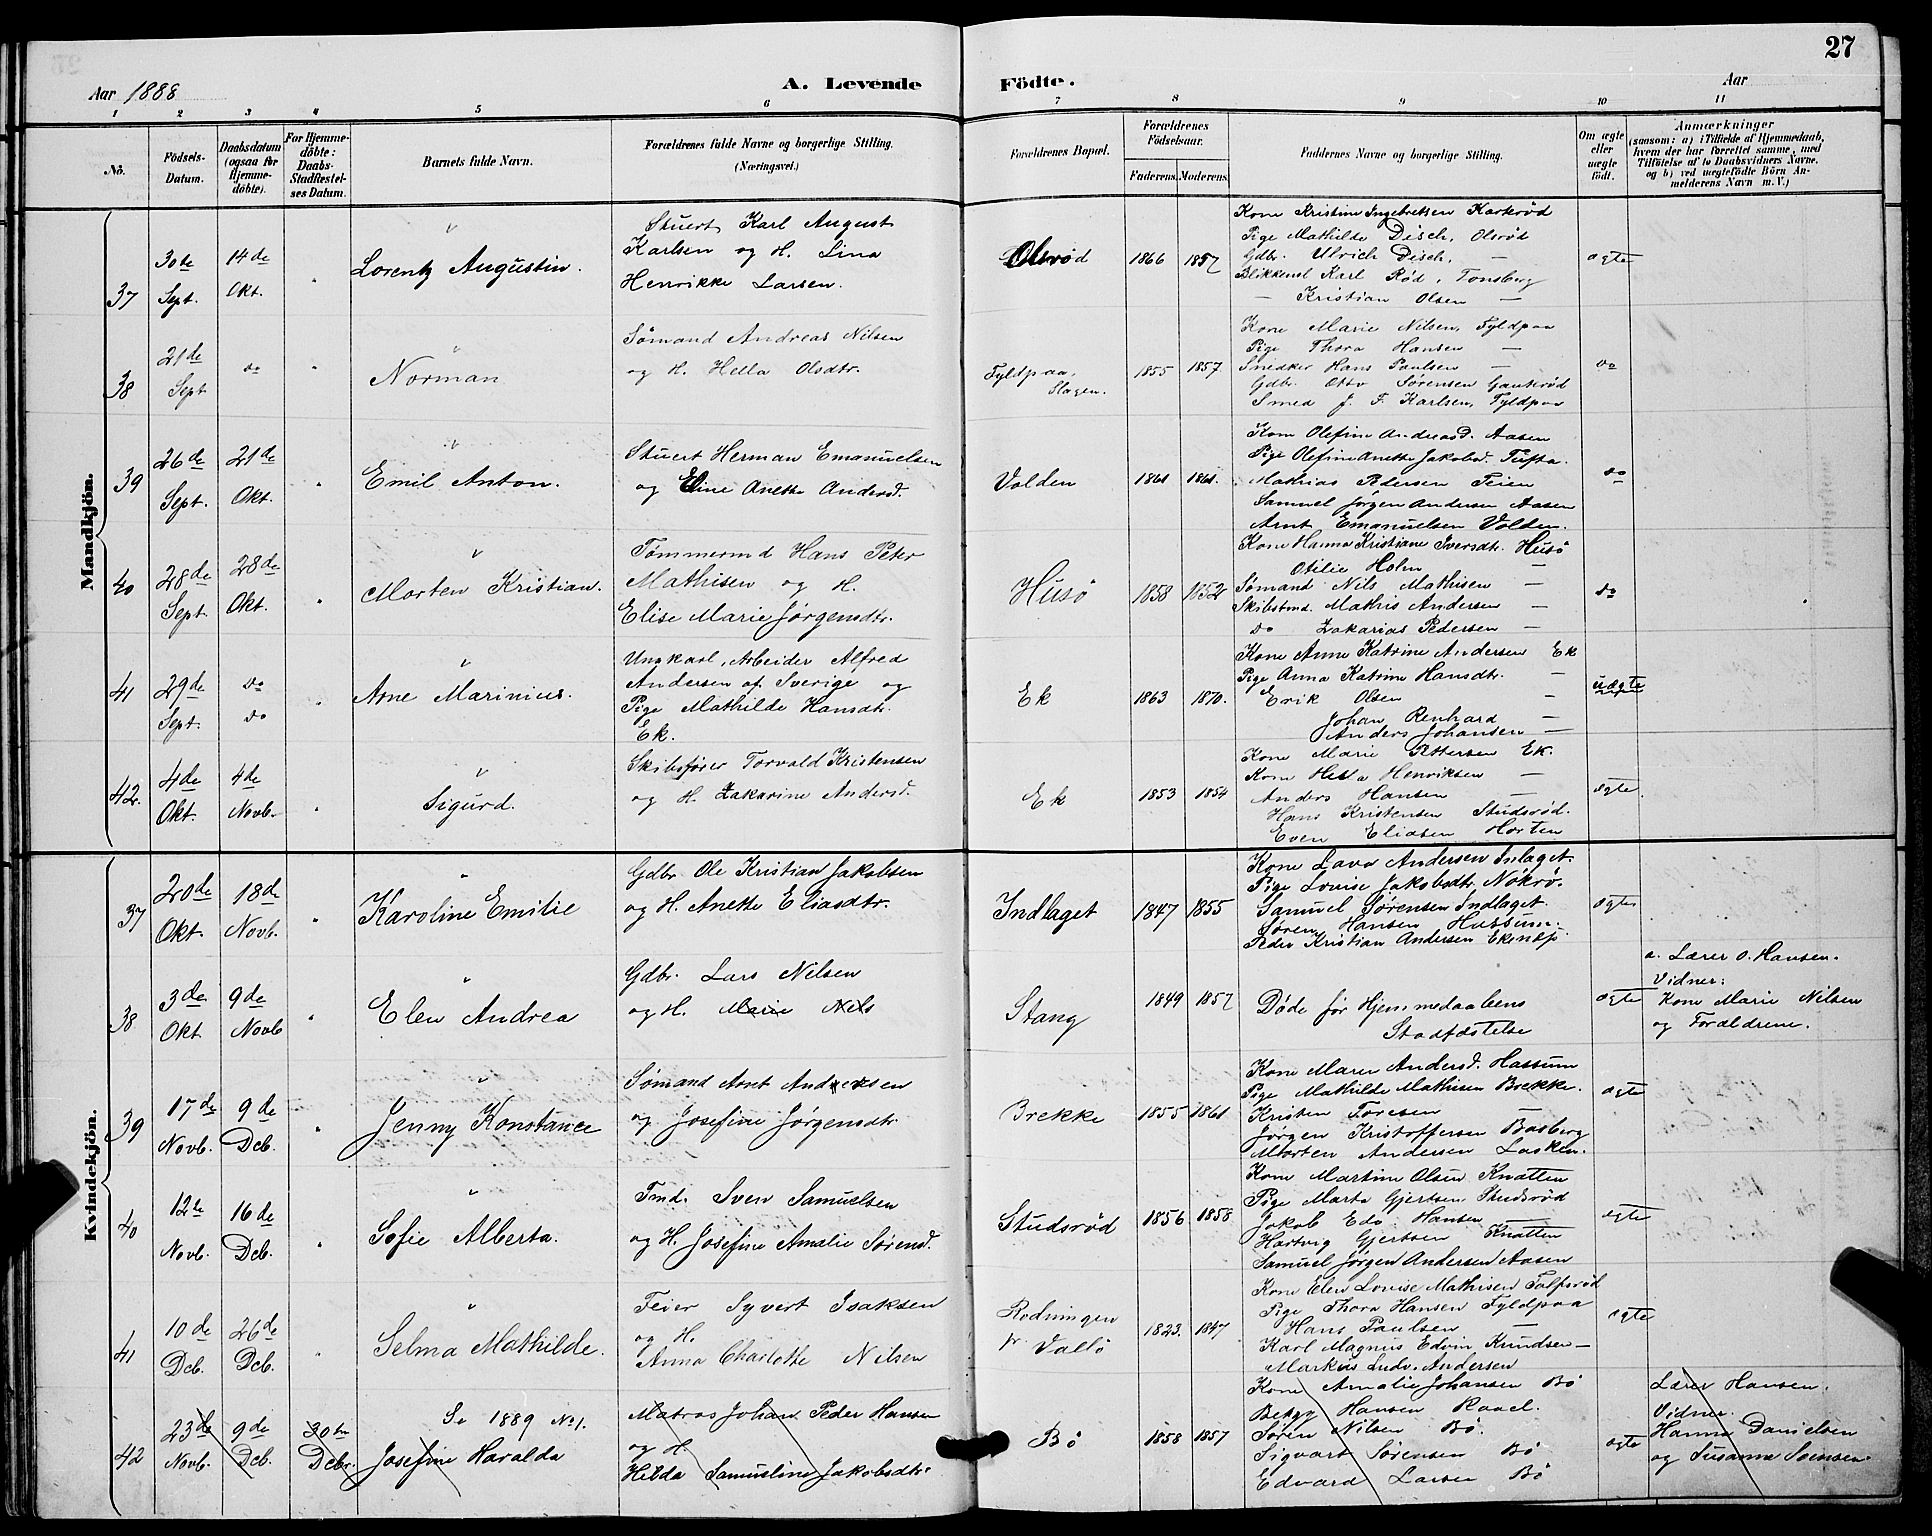 27
Aar 1888
A. Levende Födte.
Aar
1 2 3 4 5 6 7 8 9 10 11
No.
Födsels-Datum.
Daabsdatum (ogsaa for Hjemme-döbte).
For Hjemme-döbte: Daabs-Stadfæstel-ses Datum.
Barnets fulde Navn.
Forældrenes fulde Navne og borgerlige Stilling. (Næringsvei.)
Forældrenes Bopæl.
Forældrenes Födselsaar.
Faderens. Moderens.
Faddernes Navne og borgerlige Stilling.
Om ægte eller uægte födt.
Anmærkninger
(saasom: a) i Tilfælde af Hjemmedaab,
hvem der har forrettet samme, med
Tilföielse af to Daabsvidners Navne,
og b) ved uægtefödte Börn An-
melderens Navn m. V.)
Mandkjön.
37
30te Sept.
14de Okt.
"
Lorentz Augustin.
Stuert Karl August
Karlsen og H. Lina
Henrikke Larsen.
Olsrød
1866 1857
Kone Kristine Ingebretsen Karkrød
Pige Mathilde Disch, Olsrød
Gdbr. Ulrich Disch, —
Blikkensl Karl Rød, Tønsberg
— Kristian Olsen —
ægte
38
21de Sept
do
"
Norman
Sømand Andreas Nilsen
og H. Hella Olsdtr.
Fyldpaa, Slagen.
1855 1857
Kone Marie Nilsen, Fyldpaa
Pige Thora Hansen —
Snedker Hans Paulsen —
Gdbr. Otto Sørensen Gaukrød
Smed J. F. Karlsen, Fyldpaa
do
39
26de Sept.
21de Okt.
"
Emil Anton.
Stuert Herman Emanuelsen
og Eline Anette Andersd.
Volden
1861 1861.
Kone Olefine Andreasd. Aasen
Pige Olefine Anette Jakobsd. Tufta.
Mathias Pedersen Feien
Samuel Jørgen Andersen Aasen
Arnt Emanuelsen Volden.
do
40
28de Sept.
28de Okt.
"
Morten Kristian.
Tømmermd Hans Peter
Mathisen og H.
Elise Marie Jørgensdtr.
Husö
1858 1852
Kone Hanna Kristiane Iversdtr. Husö
Otilie Holm —
Sømand Nils Mathisen —
Skibstmd. Mathis Andersen —
do Zakarias Pedersen —
do
41
29de Sept.
do do
"
Arne Marinius.
Ungkarl, Arbeider Alfred
Andersen af Sverige og
Pige Mathilde Hansdtr.
Ek.
Ek
1863 1870.
Kone Anne Katrine Andersen Ek
Pige Anna Katrine Hansdtr. —
Erik Olsen —
Johan Renhard —
Anders Johansen —
uægte
42.
4de Okt.
4de Novb.
"
Sigurd.
Skibsfører Torvald Kristensen
og H. Zakarine Andersd.
Ek
1853 1854
Kone Marie Pettersen Ek.
Kone Hella Henriksen —
Anders Hansen —
Hans Kristensen Studsrød.
Even Eliasen Horten
ægte
Kvindekjön.
37
20de Okt.
18de Novb.
"
Karoline Emilie
Gdbr Ole Kristian Jakobsen
og H. Anette Eliasdtr.
Indlaget
1847 1855
Kone Lava Andersen Inlaget.
Pige Lovise Jakobsdtr. Nökrö.
Samuel Sørensen Indlaget
Søren Hansen Hassum.
Peder Kristian Andersen Eknap
ægte
38
3de Okt
9de Novb
"
Elen Andrea
Gdbr. Lars Nilsen
og H. Marie Nils
Stang
1849 1857
Døde før Hjemmedaabens
Stadfæstelse
ægte
a. Lærer O. Hansen.
Vidner:
Kone Marie Nilsen
og Forældrene.
39
17de Novb.
9de Dcb.
"
Jenny Konstance
Sømand Arnt Andersen
og Josefine Jørgensdtr
Brekke
1855 1861
Kone Maren Andersd. Hassum
Pige Mathilde Mathisen Brekke.
Kristen Foresen —
Jørgen Kristoffersen Basberg
Morten Andersen Lasken.
ægte
40
12te Novb.
16de Dcb.
"
Sofie Alberta.
Tmd. Sven Samuelsen
og H. Josefine Amalie Sørensd.
Studsrød
1856 1858
Kone Martine Olsen Knatten
Pige Marta Gjertsen Studsrød
Jakob Edv. Hansen —
Hartvig Gjertsen Knatten
Samuel Jørgen Andersen Aasen
ægte
41
10de Dcb.
26de Dcb.
"
Selma Mathilde.
Feier Syvert Isaksen
og H.
Anna Charlotte Nilsen
Rodningen
pr Vallö
1823. 1847
Kone Elen Lovise Mathisen Tolfsrød
Pige Thora Hansen Fyldpaa
Hans Paulsen —
Karl Magnus Edvin Knudsen —
Markus Ludv. Andersen
ægte
42
23de Novb.
9de Dcb.
30te Dcbr.
Se 1889 No 1.
Josefine Haralda
Matros Johan Peder Hansen
og H.
Hilda Samueline Jakobsdtr.
Bö
1858 1857
Kone Amalie Johansen Bö
Betzy Hansen Raael.
Søren Nilsen Bö.
Sigvart Sørensen Bö
Edvard Larsen Bö
ægte
Lærer Hansen.
Vidner
Hanna Danielsen
og Susanne Svensen.